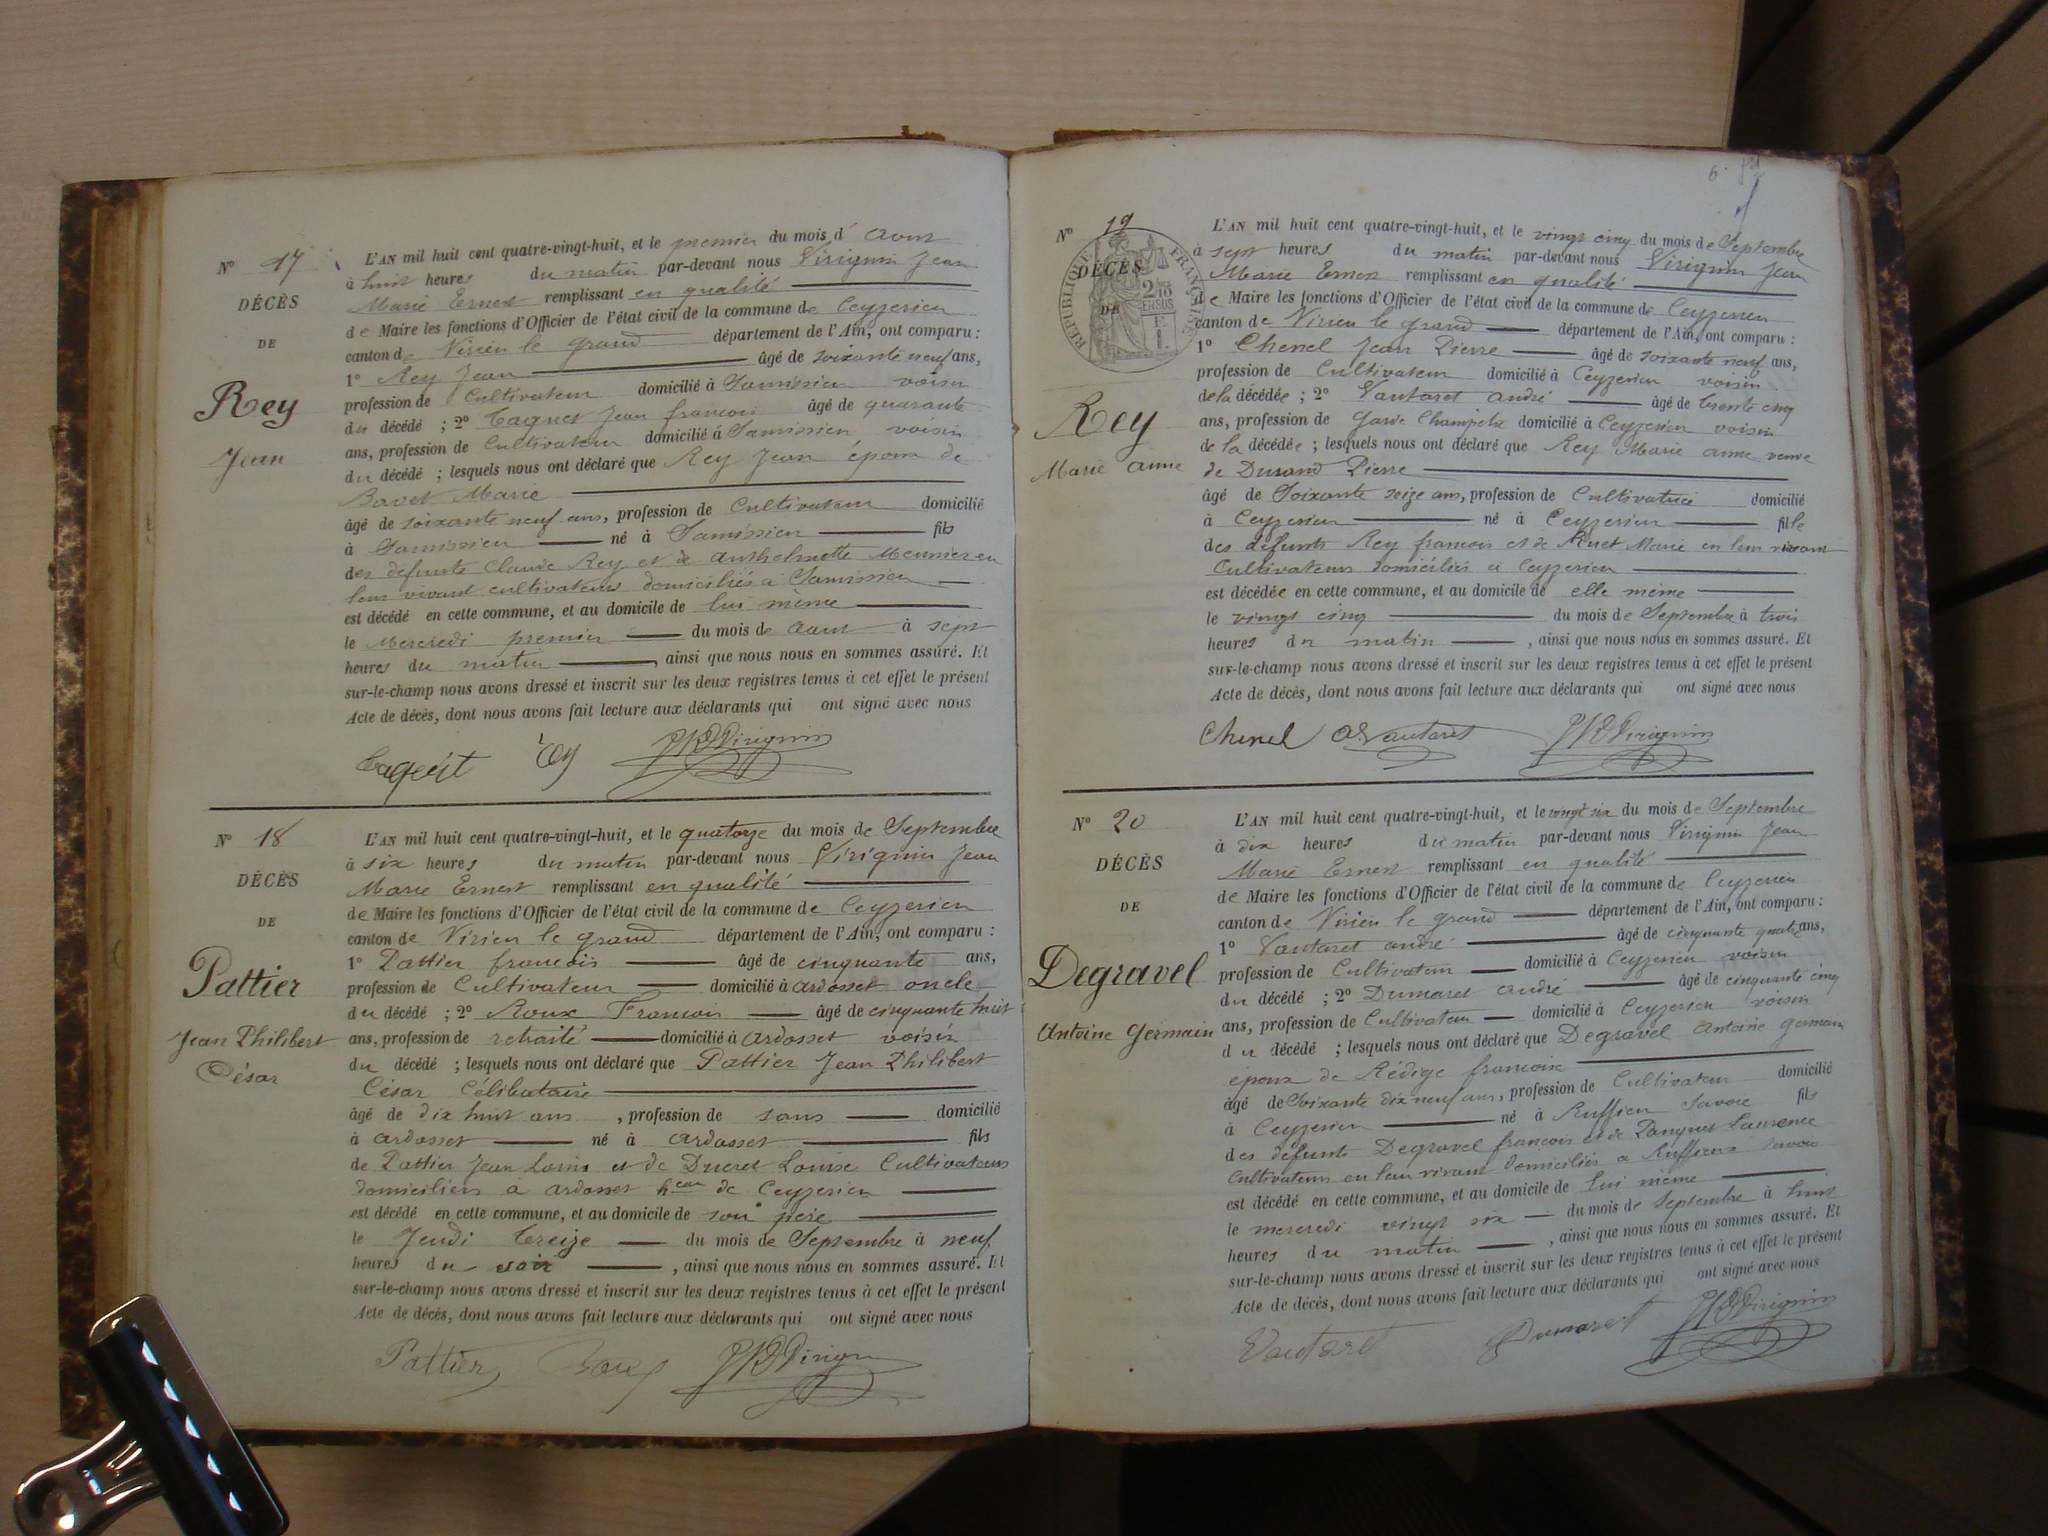 N° 17
DÉCÈS
DE
Rey
Jean
L'AN mil huit cent quatre-vingt-huit, et le premier du mois d' Aout
à huit heures du matin par-devant nous Virignin Jean
Marie Ernest remplissant en qualité
de Maire les fonctions d'Officier de l'état civil de la commune de Ceyzerieu
canton de Virieu le grand département de l'Ain, ont comparu :
1° Rey Jean âgé de soixante neuf ans,
profession de Cultivateur domicilié à voisin
du décédé ; 2° Jean francois âgé de quarante
ans, profession de Cultivateur domicilié à voisin
du décédé ; lesquels nous ont déclaré que Rey Jean, époux de
Bavet Marie
âgé de soixante neuf ans, profession de Cultivateur domicilié
à né à fils
des défunts Claude Rey et de Anthelmette Meunier en
leur vivant cultivateurs domiciliés à
est décédé en cette commune, et au domicile de lui même
le Mercredi premier du mois de Aout à sept
heures du matin , ainsi que nous nous en sommes assuré. Et
sur-le-champ nous avons dressé et inscrit sur les deux registres tenus à cet effet le présent
Acte de décès, dont nous avons fait lecture aux déclarants qui ont signé avec nous
Virignin
N° 18
DÉCÈS
DE
Pattier
Jean Philibert
César
L'AN mil huit cent quatre-vingt-huit, et le quatorze du mois de Septembre
à six heures du matin par-devant nous Virignin Jean
Marie Ernest remplissant en qualité
de Maire les fonctions d'Officier de l'état civil de la commune de Ceyzerieu
canton de Virieu le grand département de l'Ain, ont comparu :
1° Pattier francois âgé de cinquante ans,
profession de Cultivateur domicilié à ardosset oncle
du décédé ; 2° Roux Francois âgé de cinquante huit
ans, profession de retraité domicilié à ardosset voisin
du décédé ; lesquels nous ont déclaré que Pattier Jean Philibert
César Célibataire
âgé de dix huit ans , profession de sans domicilié
à ardosset né à ardosset fils
de Pattier Jean Louis et de Ducret Louise Cultivateurs
domiciliés à ardosset heau de Ceyzerieu
est décédé en cette commune, et au domicile de son père
le Jeudi treize du mois de Septembre à neuf
heures du soir , ainsi que nous nous en sommes assuré. Et
sur-le-champ nous avons dressé et inscrit sur les deux registres tenus à cet effet le présent
Acte de décès, dont nous avons fait lecture aux déclarants qui ont signé avec nous
Pattier Roux Virignin
N° 19
RÉPUBLIQUE FRANÇAISE
2/10 EN SUS
DÉCÈS
DE
Rey
Marie Anne
L'AN mil huit cent quatre-vingt-huit, et le vingt cinq du mois de Septembre
à sept heures du matin par-devant nous Virignin Jean
Marie Ernest remplissant en qualité
de Maire les fonctions d'Officier de l'état civil de la commune de Ceyzerieu
canton de Virieu le grand département de l'Ain, ont comparu :
1° Chenel Jean Pierre âgé de soixante neuf ans,
profession de Cultivateur domicilié à Ceyzerieu voisin
de la décédée ; 2° Vautaret André âgé de trente cinq
ans, profession de Garde Champêtre domicilié à Ceyzerieu voisin
de la décédée ; lesquels nous ont déclaré que Rey Marie anne veuve
de Durand Pierre
âgé de Soixante seize ans, profession de Cultivatrice domicilié
à Ceyzerieu né à Ceyzerieu fille
des défunts Rey francois et de Ruet Marie en leur vivant
Cultivateurs domiciliés à Ceyzerieu
est décédée en cette commune, et au domicile de elle même
le vingt cinq du mois de Septembre à trois
heures du matin , ainsi que nous nous en sommes assuré. Et
sur-le-champ nous avons dressé et inscrit sur les deux registres tenus à cet effet le présent
Acte de décès, dont nous avons fait lecture aux déclarants qui ont signé avec nous
Chenel A. Vautaret Virignin
N° 20
DÉCÈS
DE
Degravel
Antoine Germain
L'AN mil huit cent quatre-vingt-huit, et le vingt six du mois de Septembre
à dix heures du matin par-devant nous Virignin Jean
Marie Ernest remplissant en qualité
de Maire les fonctions d'Officier de l'état civil de la commune de Ceyzerieu
canton de Virieu le grand département de l'Ain, ont comparu :
1° Vautaret André âgé de cinquante quatre ans,
profession de Cultivateur domicilié à Ceyzerieu voisin
du décédé ; 2° Dumaret André âgé de cinquante cinq
ans, profession de Cultivateur domicilié à Ceyzerieu voisin
du décédé ; lesquels nous ont déclaré que Degravel Antoine Germain
époux de francoise
âgé de Soixante dix neuf ans, profession de Cultivateur domicilié
à Ceyzerieu né à Ruffieu Savoie fils
des défunts Degravel francois et de Laurence
Cultivateurs en leur vivant domiciliés à Ruffieux Savoie
est décédé en cette commune, et au domicile de lui même
le mercredi vingt six du mois de Septembre à huit
heures du matin , ainsi que nous nous en sommes assuré. Et
sur-le-champ nous avons dressé et inscrit sur les deux registres tenus à cet effet le présent
Acte de décès, dont nous avons fait lecture aux déclarants qui ont signé avec nous
Vautaret Dumaret Virignin